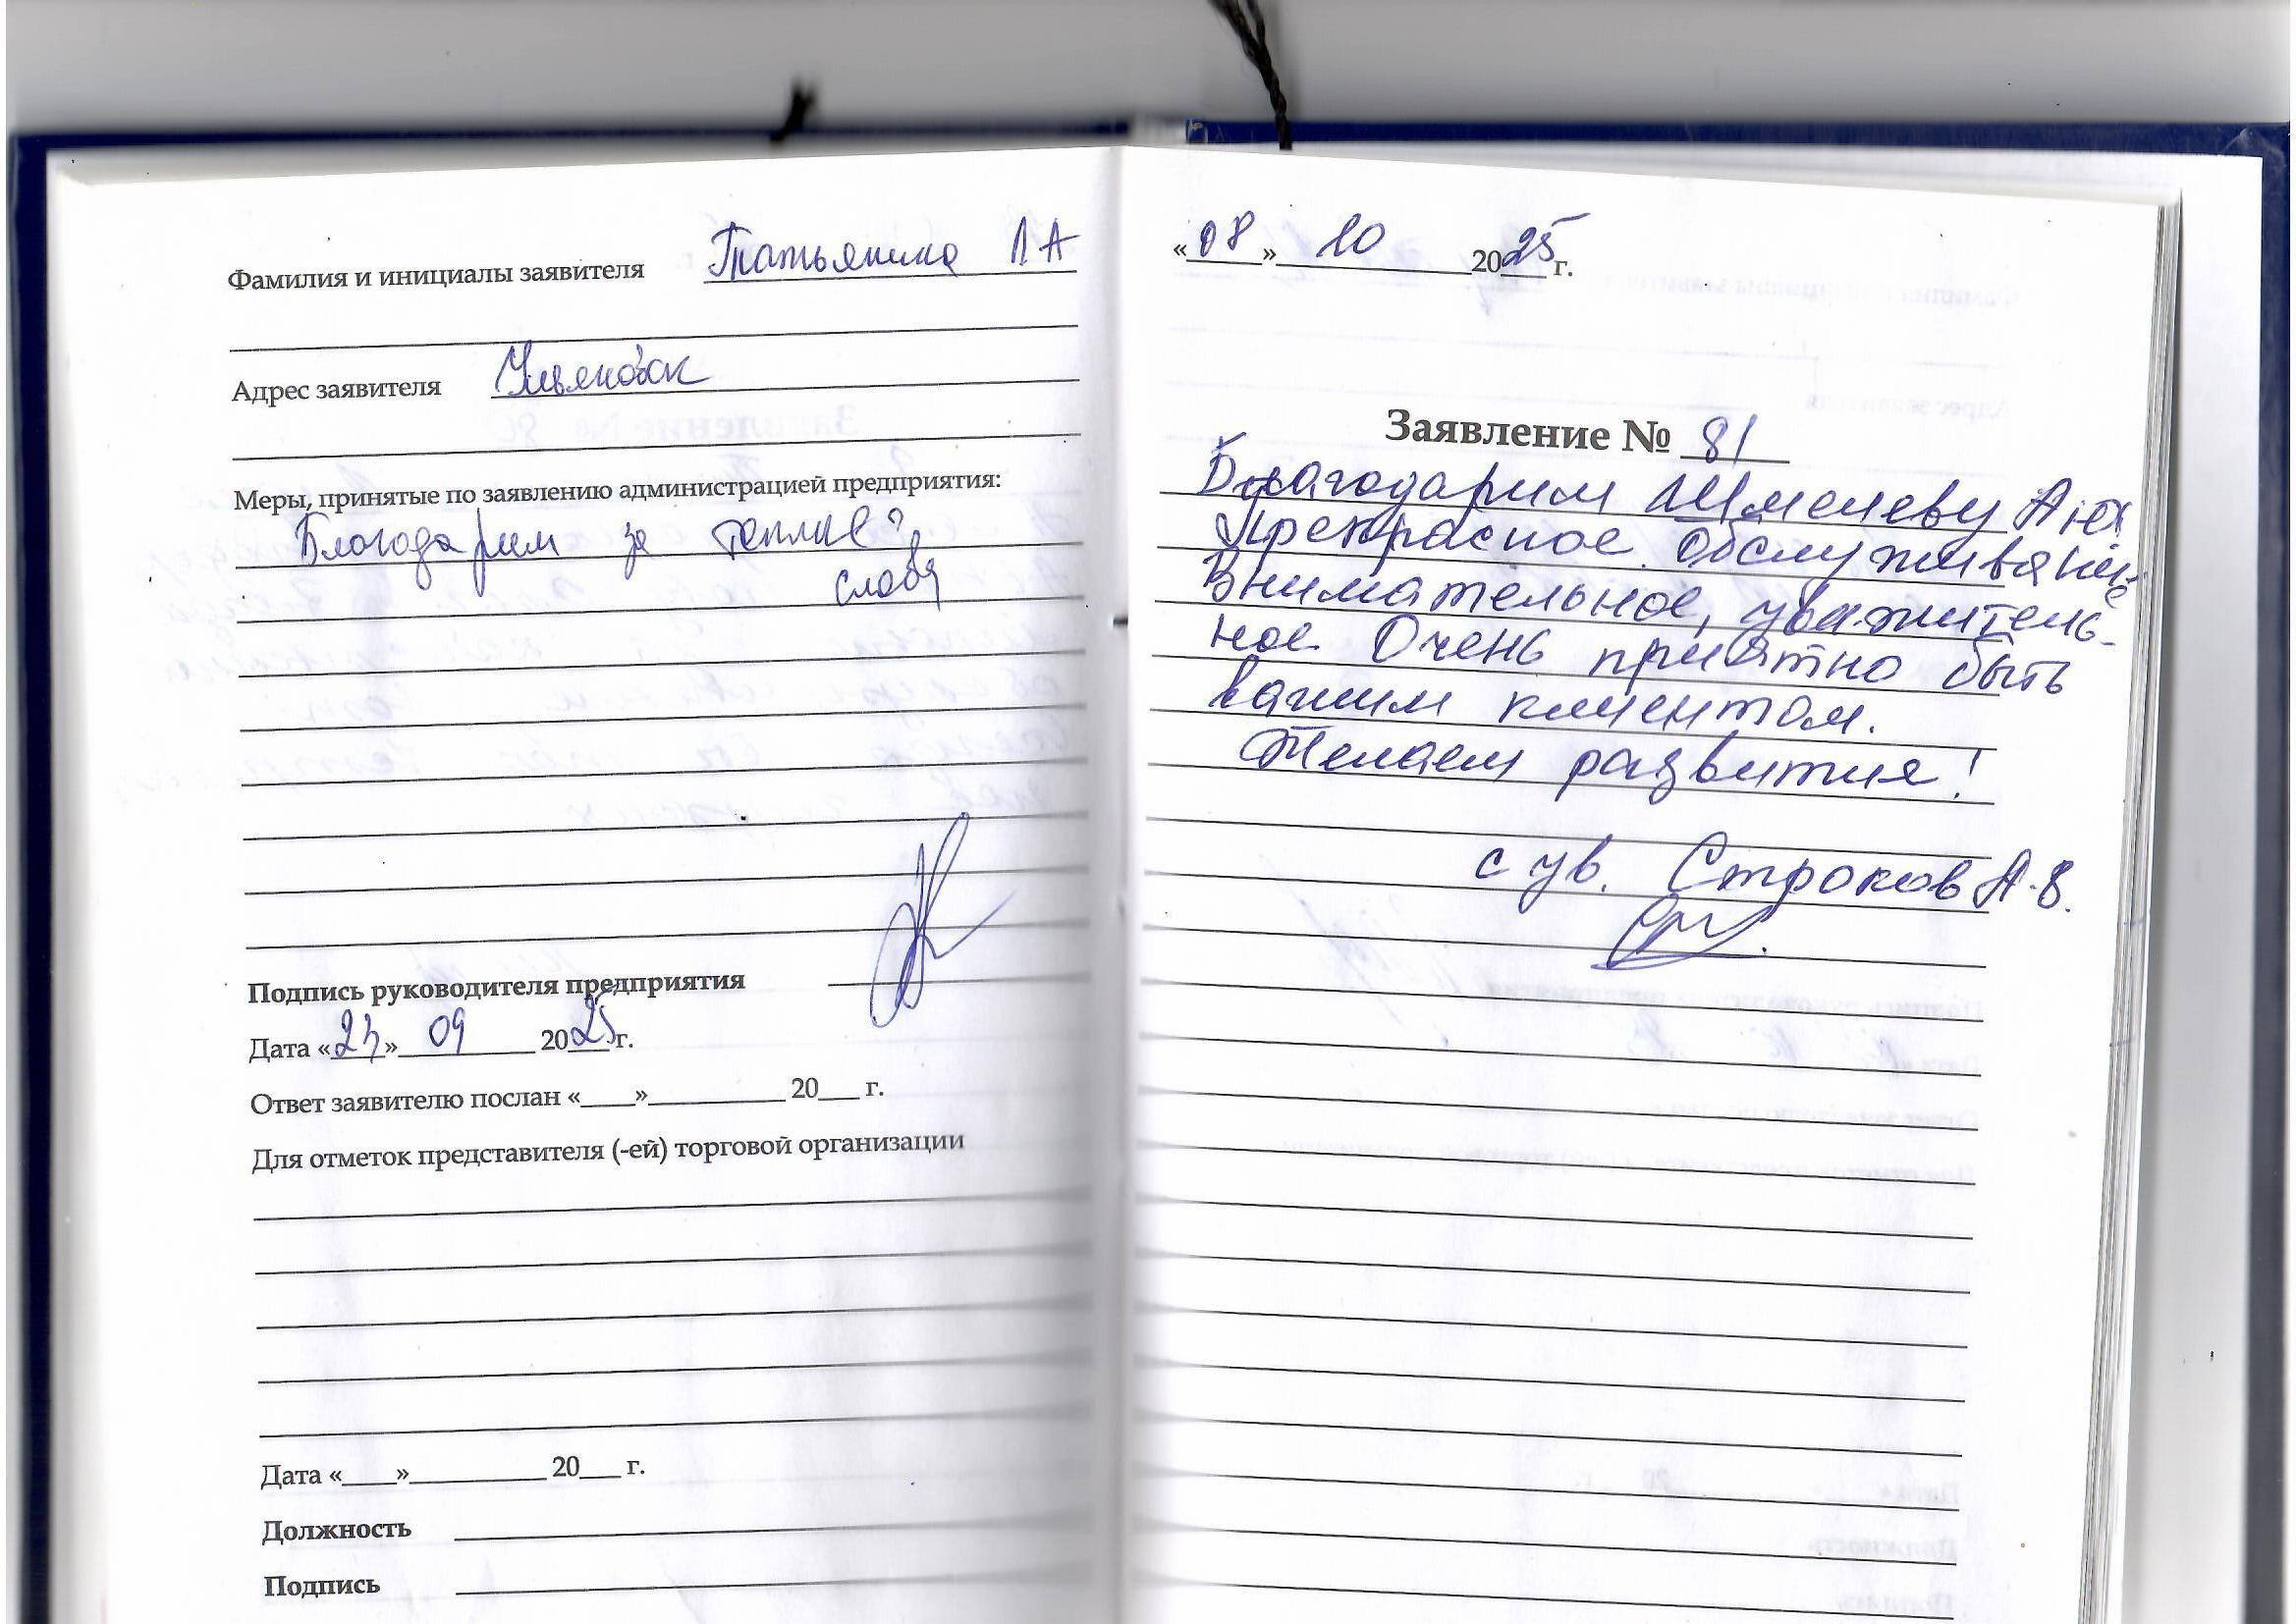 Фамилия и инициалы заявителя Татьянина Л А
Адрес заявителя Ульяновск
Меры, принятые по заявлению администрацией предприятия:
Благодарим за теплые
слова
Подпись руководителя предприятия
Дата «23» 09 2025 г.
Ответ заявителю послан «____»__________ 20___ г.
Для отметок представителя (-ей) торговой организации
Дата «____»__________ 20___ г.
Должность
Подпись
«08» 10 2025 г.
Заявление № 81
Благодарим Шмелеву А Ю
Прекрасное обслуживание
Внимательное, уважитель-
ное. Очень приятно быть
вашим клиентом.
Желаем развития!
с ув. Строков А.В.